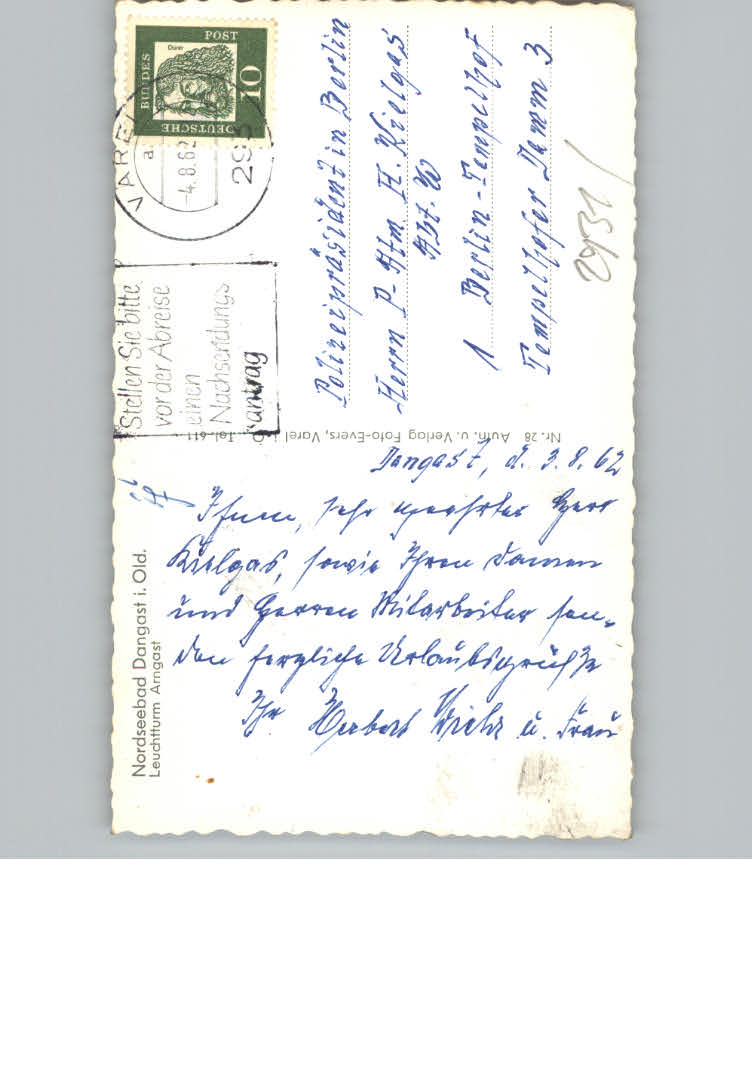 Nordseebad Dangast i. Old.
Leuchtturm Arngast
Dangast, d. 3.8.62
Ihnen, sehr geehrter Herr
Kielgas, sowie Ihren Damen
und Herren Mitarbeiter sen-
den herzliche Urlaubsgrüße
Ihr Herbert u. Frau
Nr. 28 Aufn. u. Verlag Foto-Evers, Varel i. O. Tel. 611
DEUTSCHE
BUNDES
POST
Dürer
10
VAREL
-4.8.62
293
Stellen Sie bitte
vor der Abreise
einen
Nachsendungs
antrag
Polizeipräsident in Berlin
Herrn P-Atm. H. Kielgas
Abt. W
1 Berlin-Tempelhof
Tempelhofer Damm 3
2931